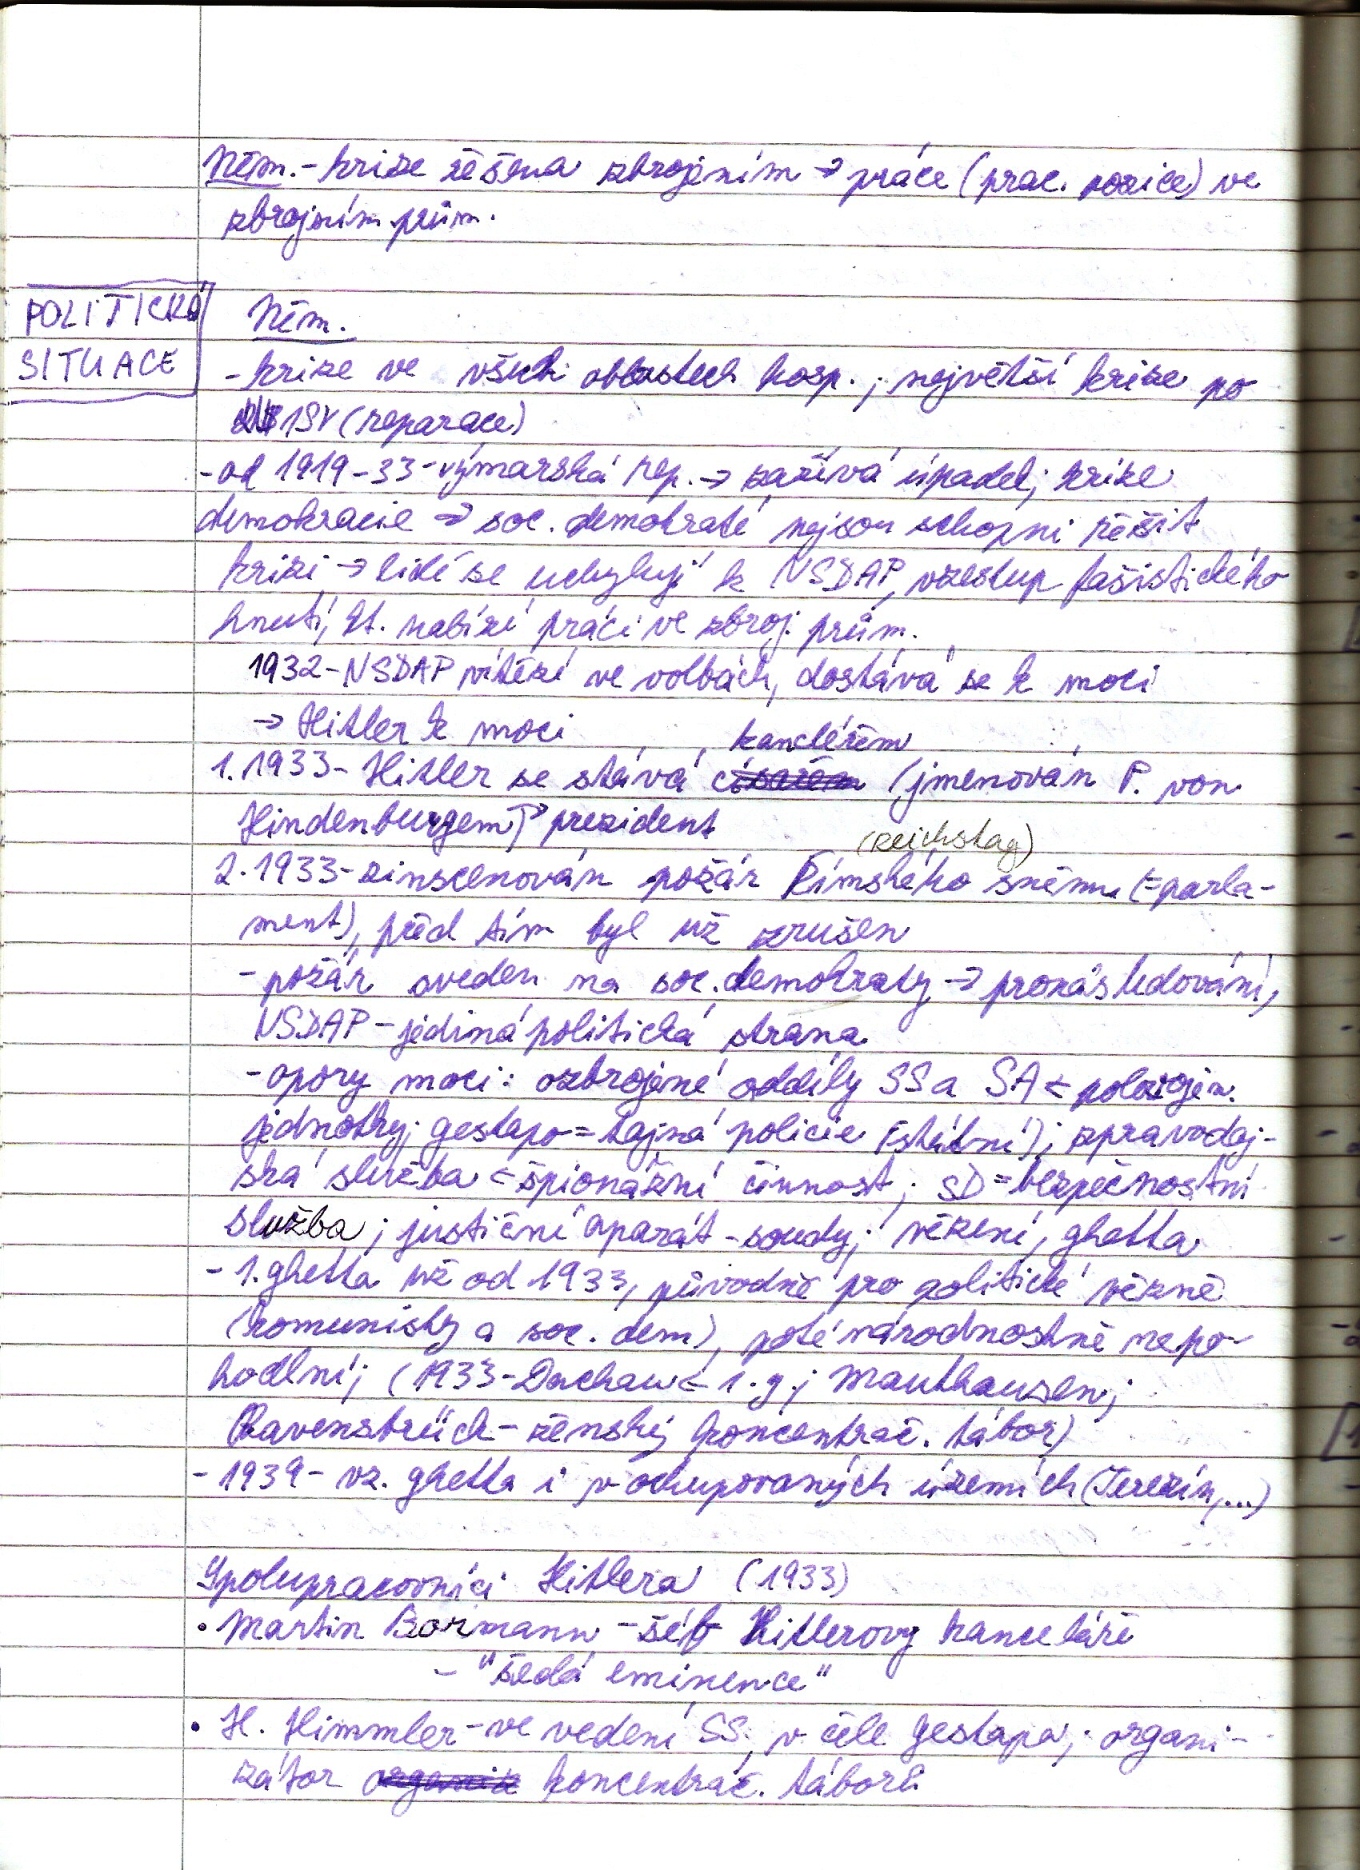 Něm. - krize řešena zbrojením → práce (prac. pozice) ve
zbrojním prům.
POLITICKÁ
SITUACE
Něm.
- krize ve všech oblastech hosp.; největší krize po
1SV (reparace)
- od 1919-33 - výmarská rep. → zažívá úpadek, krize
demokracie → soc. demokraté nejsou schopni řěšit
krizi → lidé se uchylují k NSDAP, vzestup fašistického
hnutí, kt. nabízí práci ve zbroj. prům.
1932 - NSDAP vítězí ve volbách, dostává se k moci
→ Hitler k moci
kancléřem
1.1933 - Hitler se stává (jmenován P. von
Hindenburgem) → prezident
(Reichstag)
2.1933 - zinscenován požár Římského sněmu (= parla-
ment), před tím byl už zrušen
- požár sveden na soc. demokraty → pronásledování,
NSDAP - jediná politická strana
- opory moci: ozbrojené oddíly SS a SA <
jednotky; gestapo = tajná policie (státní); zpravodaj-
ská služba < špionážní činnost; SD = bezpečnostní
služba; justiční aparát - soudy; vězení, ghetta
- 1. ghetta už od 1933, původně pro politické vězně
(komunisty a soc. dem), poté národnostně nepo-
hodlní; (1933 - Dachau < 1. g.; Mauthausen;
Ravensbrück - ženský koncentrač. tábor)
- 1939 - vz. ghetta i v okupovaných územích (Terezín,...)
Spolupracovníci Hitlera (1933)
• Martin Bormann - šéf Hitlerovy kanceláře
- "šedá eminence"
• H. Himmler - ve vedení SS, v čele gestapa; organi-
zátor koncentrač. táborů